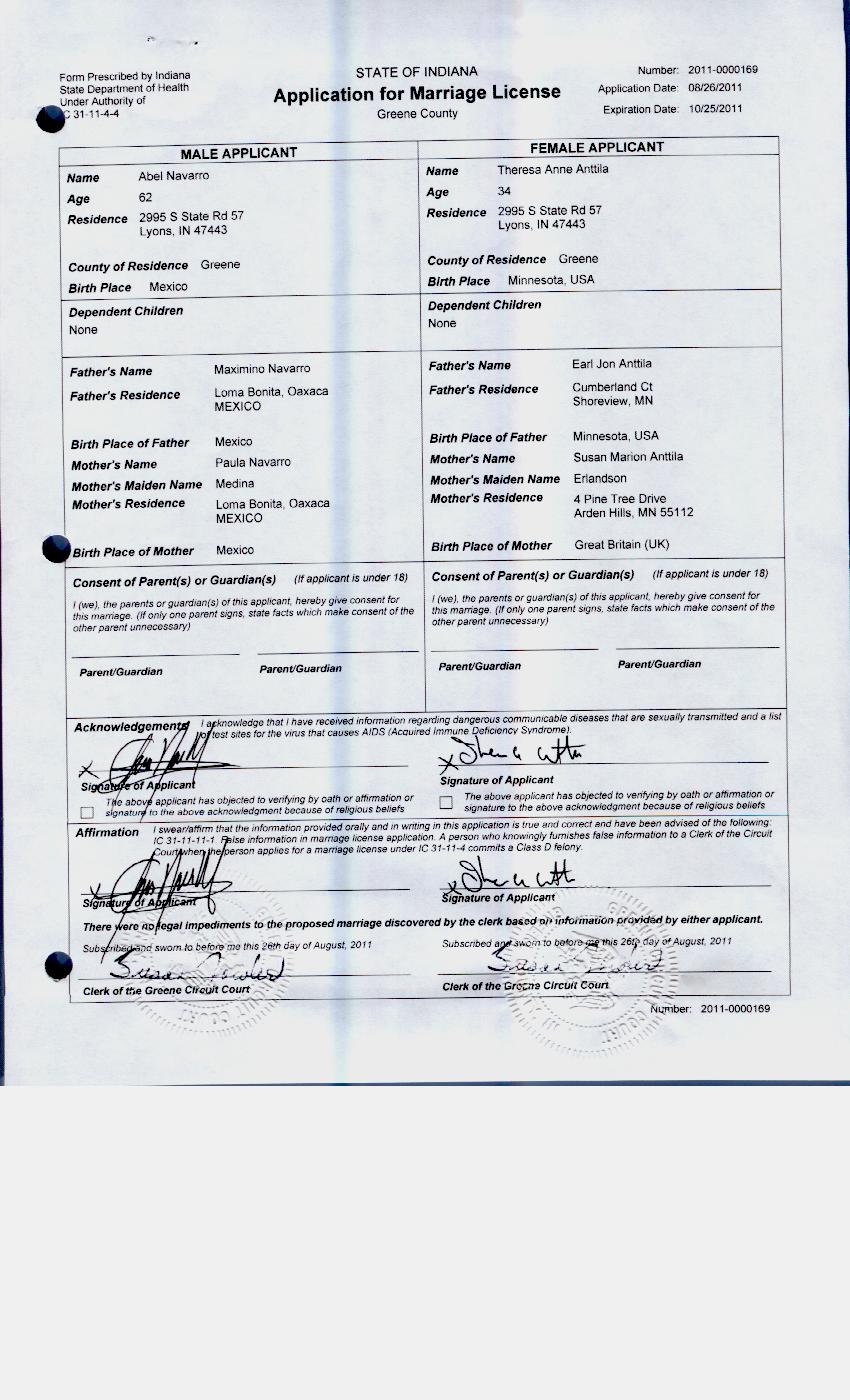 Form Prescribed by Indiana
State Department of Health
Under Authority of
IC 31-11-4-4
STATE OF INDIANA
Application for Marriage License
Greene County
Number: 2011-0000169
Application Date: 08/26/2011
Expiration Date: 10/25/2011
MALE APPLICANT
Name Abel Navarro
Age 62
Residence 2995 S State Rd 57
Lyons, IN 47443
County of Residence Greene
Birth Place Mexico
Dependent Children
None
Father's Name Maximino Navarro
Father's Residence Loma Bonita, Oaxaca
MEXICO
Birth Place of Father Mexico
Mother's Name Paula Navarro
Mother's Maiden Name Medina
Mother's Residence Loma Bonita, Oaxaca
MEXICO
Birth Place of Mother Mexico
Consent of Parent(s) or Guardian(s) (If applicant is under 18)
I (we), the parents or guardian(s) of this applicant, hereby give consent for
this marriage. (If only one parent signs, state facts which make consent of the
other parent unnecessary)
Parent/Guardian Parent/Guardian
FEMALE APPLICANT
Name Theresa Anne Anttila
Age 34
Residence 2995 S State Rd 57
Lyons, IN 47443
County of Residence Greene
Birth Place Minnesota, USA
Dependent Children
None
Father's Name Earl Jon Anttila
Father's Residence Cumberland Ct
Shoreview, MN
Birth Place of Father Minnesota, USA
Mother's Name Susan Marion Anttila
Mother's Maiden Name Erlandson
Mother's Residence 4 Pine Tree Drive
Arden Hills, MN 55112
Birth Place of Mother Great Britain (UK)
Consent of Parent(s) or Guardian(s) (If applicant is under 18)
I (we), the parents or guardian(s) of this applicant, hereby give consent for
this marriage. (If only one parent signs, state facts which make consent of the
other parent unnecessary)
Parent/Guardian Parent/Guardian
Acknowledgements I acknowledge that I have received information regarding dangerous communicable diseases that are sexually transmitted and a list
of test sites for the virus that causes AIDS (Acquired Immune Deficiency Syndrome).
X
X
Signature of Applicant
Signature of Applicant
The above applicant has objected to verifying by oath or affirmation or
signature to the above acknowledgment because of religious beliefs
The above applicant has objected to verifying by oath or affirmation or
signature to the above acknowledgment because of religious beliefs
Affirmation I swear/affirm that the information provided orally and in writing in this application is true and correct and have been advised of the following:
IC 31-11-11-1 False information in marriage license application. A person who knowingly furnishes false information to a Clerk of the Circuit
Court when the person applies for a marriage license under IC 31-11-4 commits a Class D felony.
X
X
Signature of Applicant
Signature of Applicant
There were no legal impediments to the proposed marriage discovered by the clerk based on information provided by either applicant.
Subscribed and sworn to before me this 26th day of August, 2011
Subscribed and sworn to before me this 26th day of August, 2011
Susan
Susan
Clerk of the Greene Circuit Court
Clerk of the Greene Circuit Court
Number: 2011-0000169